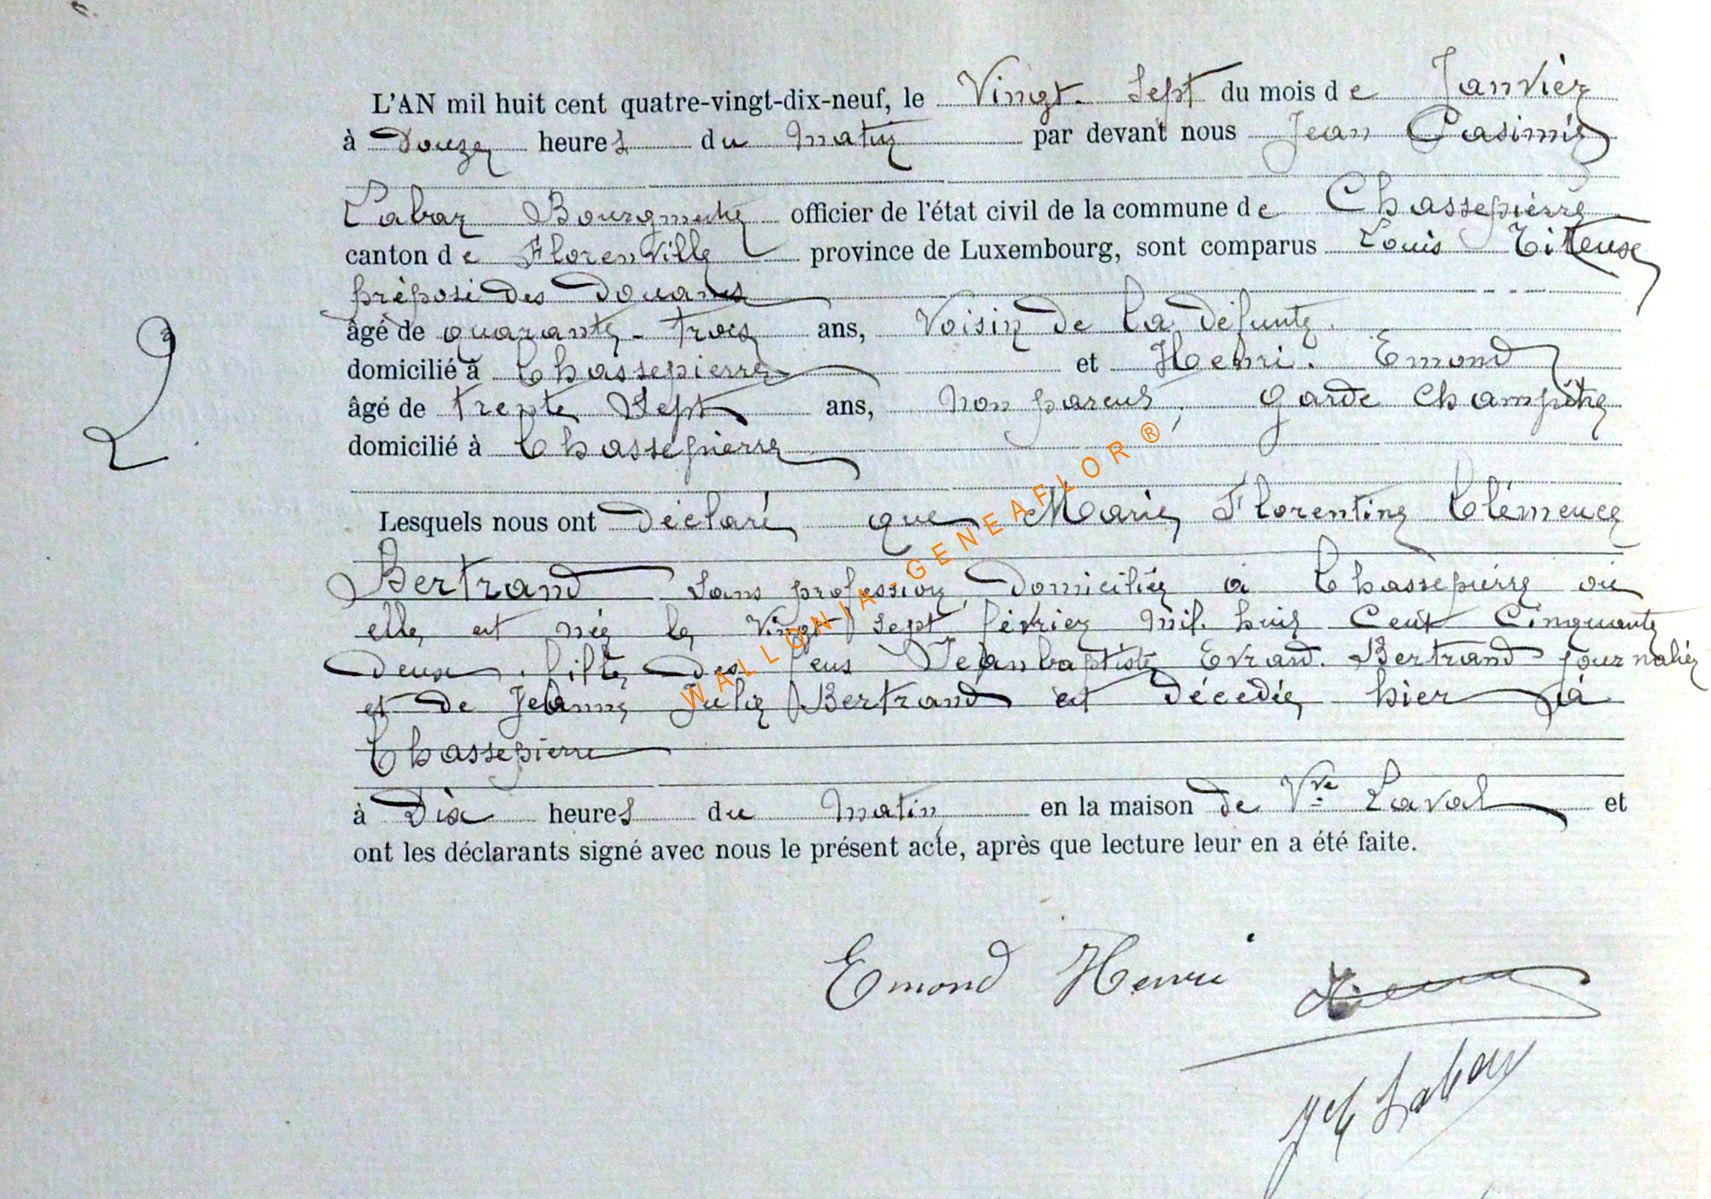 L'AN mil huit cent quatre-vingt-dix-neuf, le Vingt-Sept du mois de Janvier
à Douze heures du matin par devant nous Jean Casimir
Labar Bourgmestre officier de l'état civil de la commune de Chassepierre
canton de Florenville province de Luxembourg, sont comparus Louis
préposé des Douanes
âgé de quarante-trois ans, Voisin de la défunte
domicilié à Chassepierre et Henri Emond
âgé de trente Sept ans, non parent, garde champêtre
domicilié à Chassepierre
2.
Lesquels nous ont déclaré que Marie Florentine Clémence
Bertrand Sans profession, Domiciliée à Chassepierre où
elle est née le Vingt Sept février mil huit Cent Cinquante
deux. fille des feus Jeanbaptiste Evrard Bertrand journalier
et de Jeanne Julie Bertrand est décédée hier à
Chassepierre
à Dix heures du matin en la maison de Vve Laval et
ont les déclarants signé avec nous le présent acte, après que lecture leur en a été faite.
WALLONIA-GENEAFLOR ®
Emond Henri
Labar